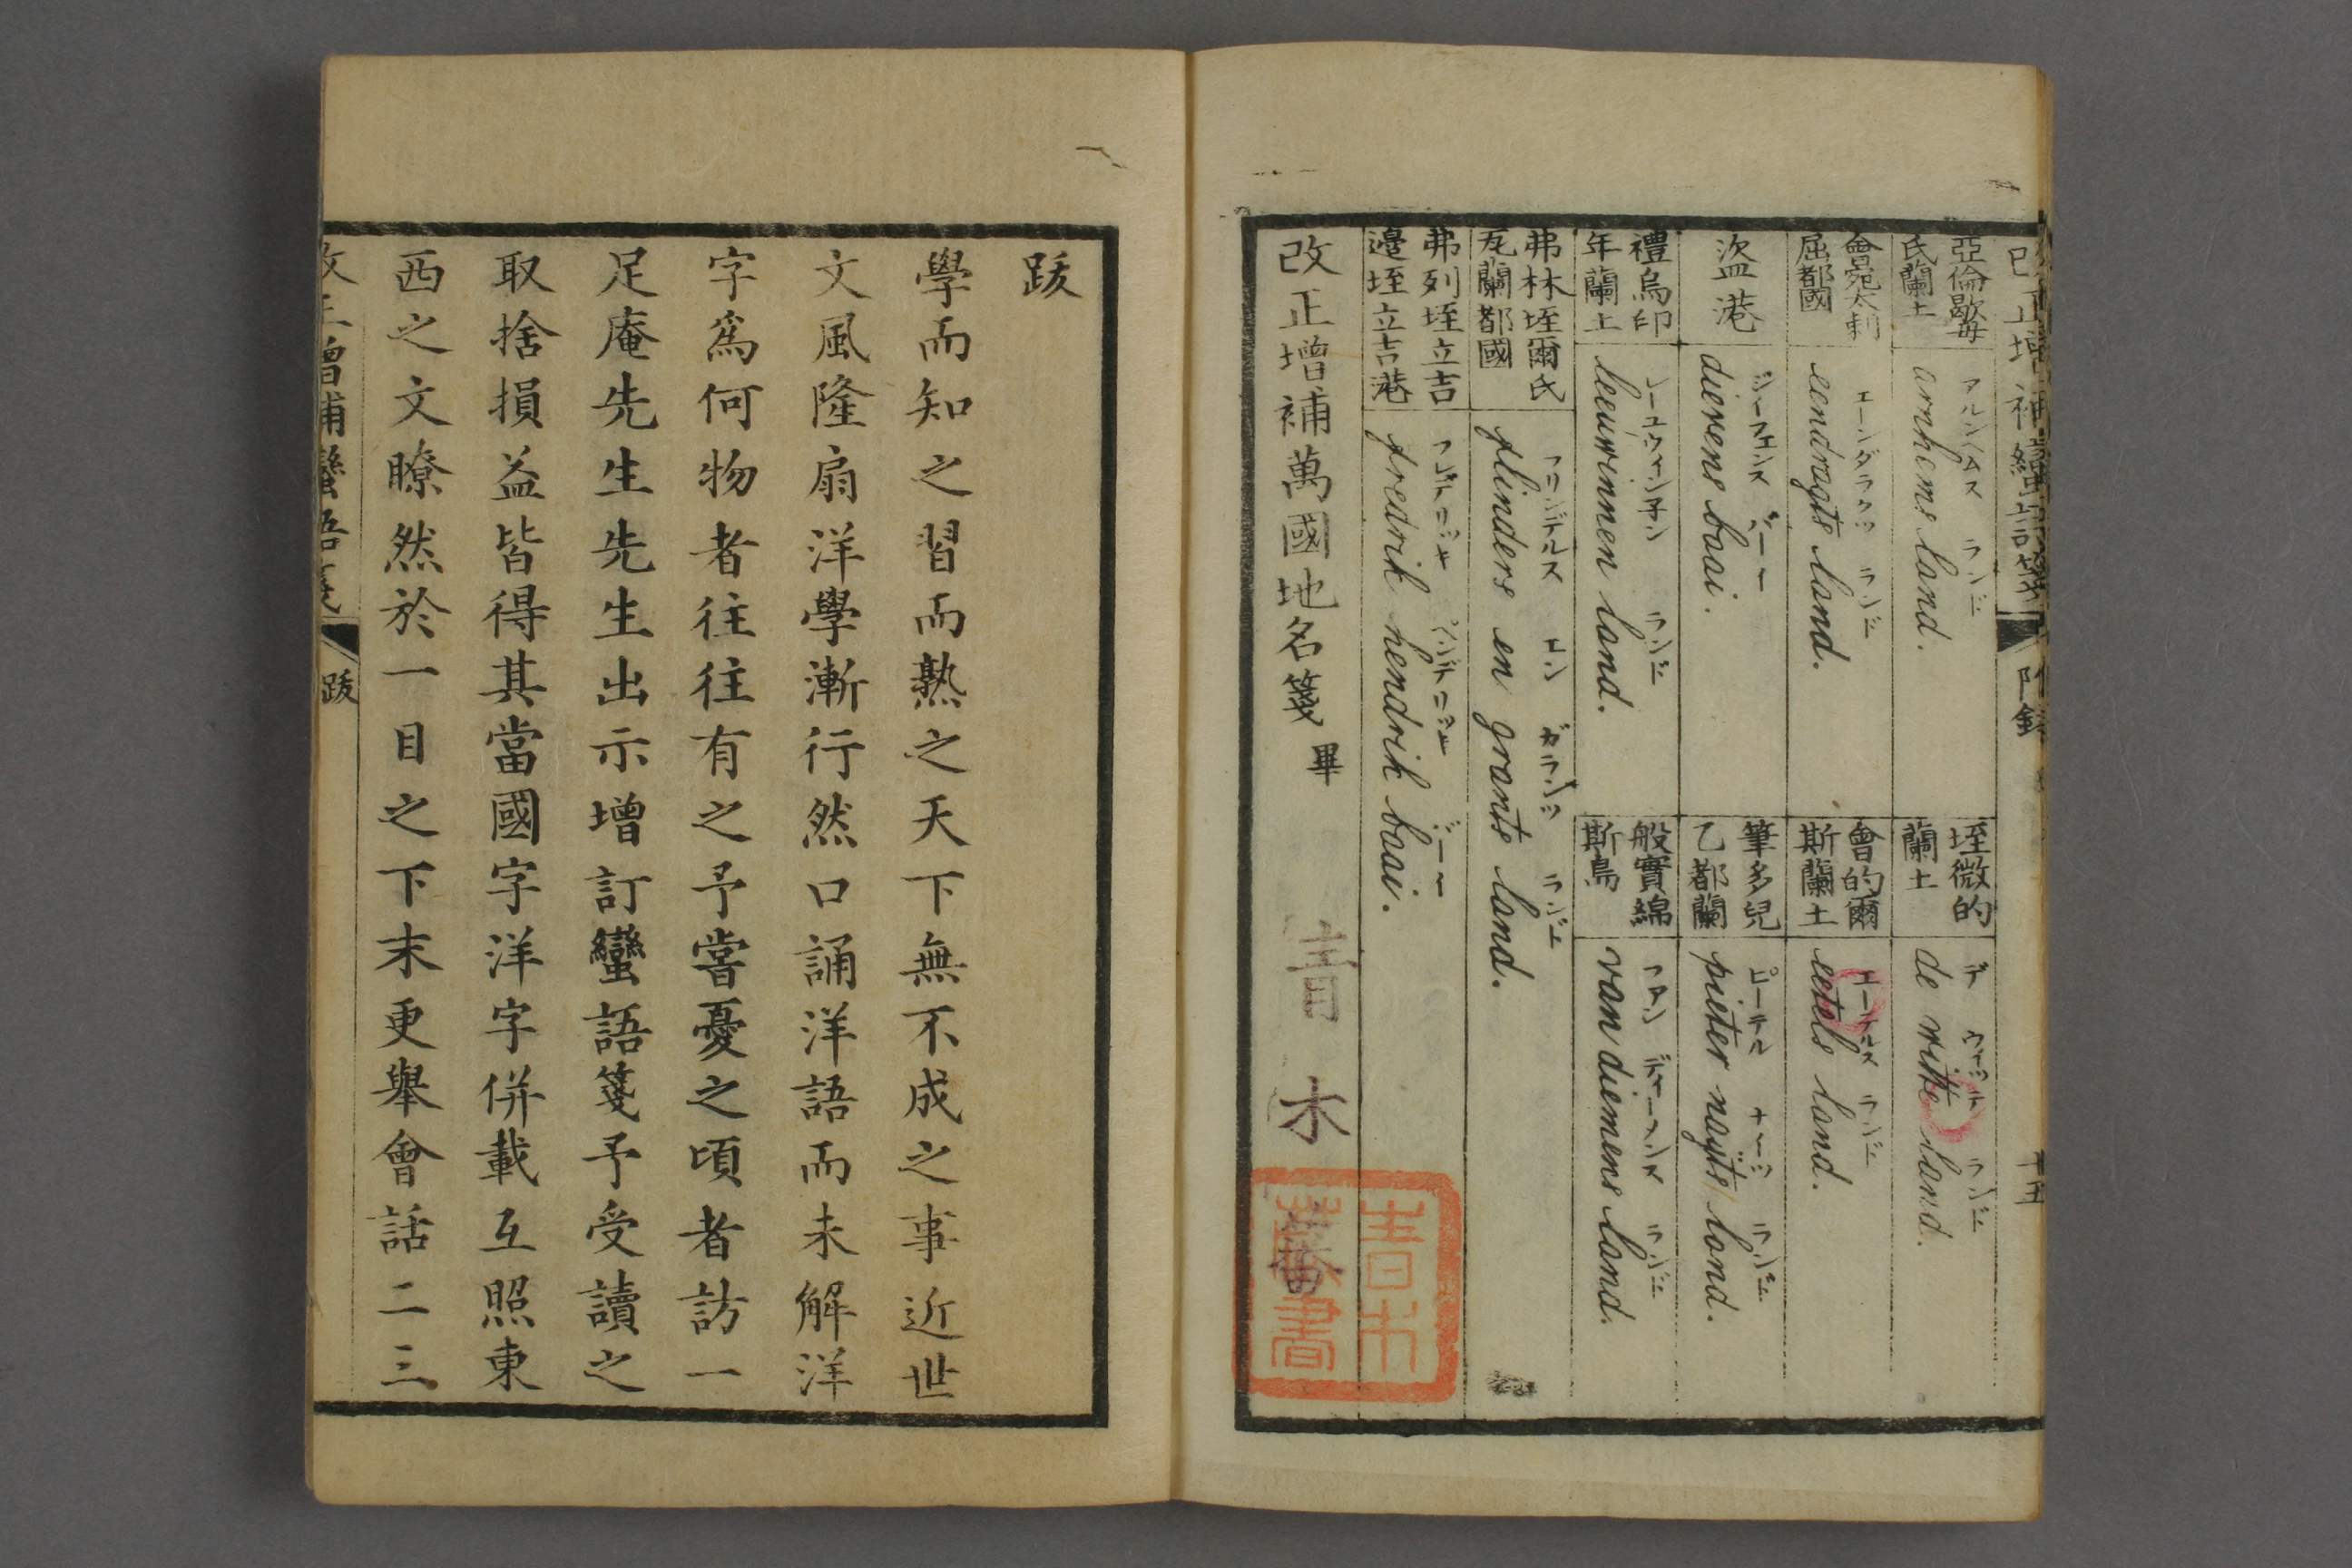 亞倫歇毋
氏蘭土
アルンヘムス ランド
arnhems land.
垤微的
蘭土
デ ウィッテ ランド
de witte land.
會宛太剌
屈都國
エーンダラクツ ランド
eendragts land.
會的爾
斯蘭土
エーテルス ランド
eetels land.
盗港
ジーフェンス バーイ
dievens baai.
筆多兒
乙都蘭
ピーテル ナーイツ ランド
pieter nayts land.
禮烏印
年蘭土
レーユウィンネン ランド
leeuwinnen land.
般實綿
斯島
ファン ディーメンス ランド
van diemens land.
弗林垤爾氏
瓦蘭都國
フリンデルス エン ガランツ ランド
flinders en grants land.
弗列垤立吉
邉垤立吉港
フレデリッキ ヘンデリッキ バーイ
fredrik hendrik baai.
改正增補萬國地名箋 畢
青木
青木
藏書
跋
學而知之習而熟之天下無不成之事近世
文風隆扇洋學漸行然口誦洋語而未解洋
字爲何物者往往有之予嘗憂之頃者訪一
足庵先生先生出示增訂蠻語箋予受讀之
取捨損益皆得其當國字洋字併載互照東
西之文瞭然於一目之下末更舉會話二三
改正增補蠻語箋 跋